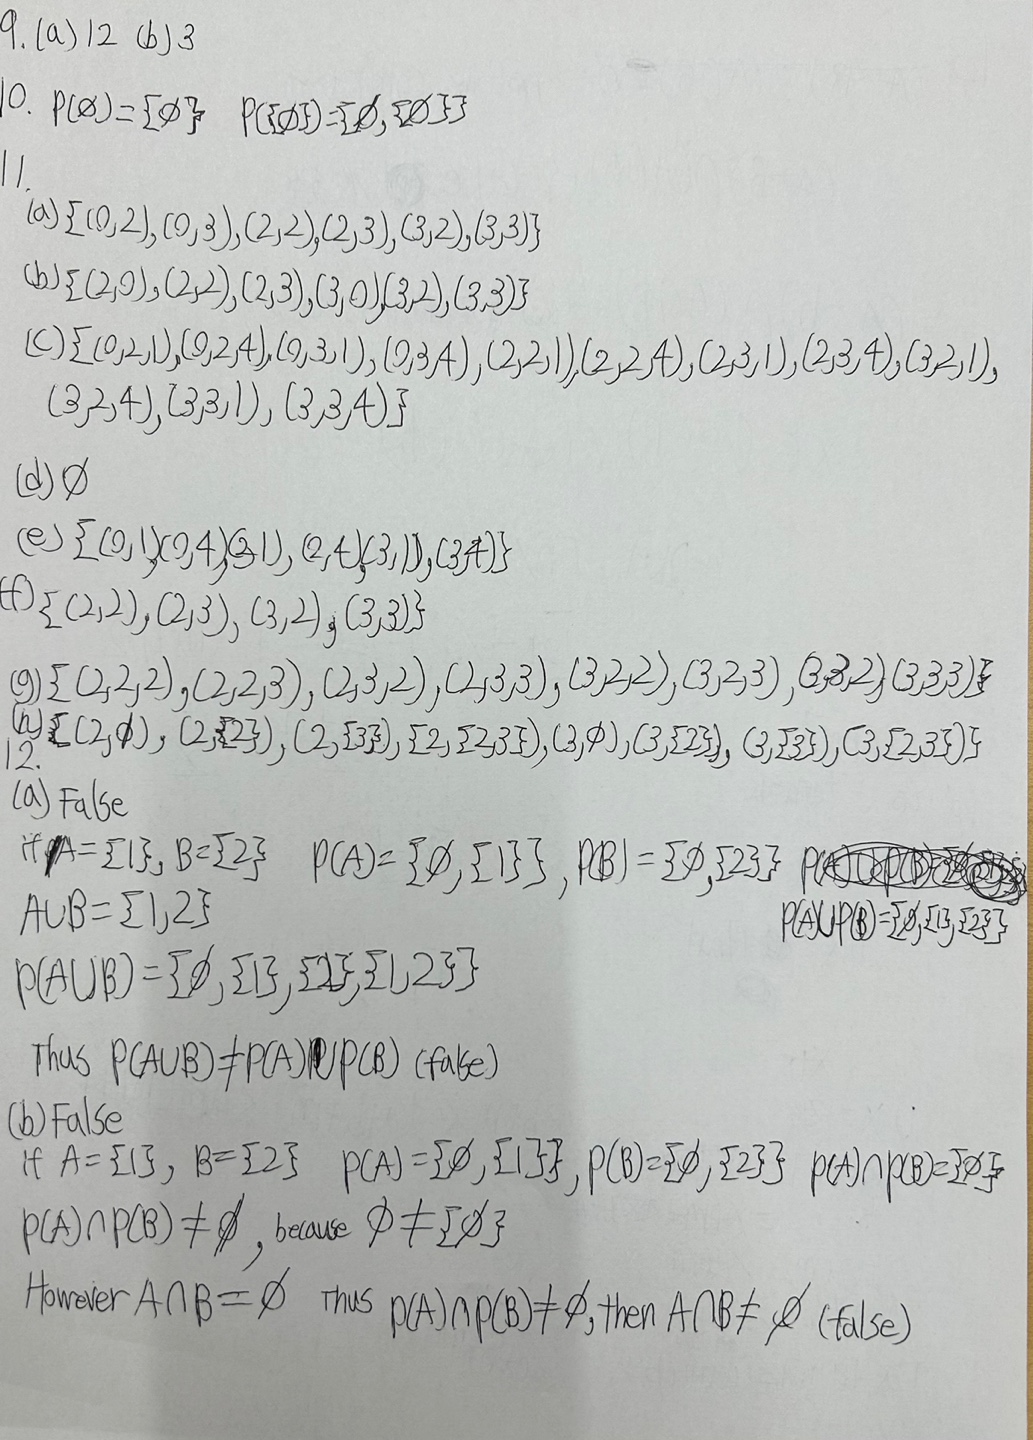 9. (a) 12 (b) 3
10. P(∅)={∅} P({∅})={∅,{∅}}
11.
(a) {(0,2),(0,3),(2,2),(2,3),(3,2),(3,3)}
(b) {(2,0),(2,2),(2,3),(3,0),(3,2),(3,3)}
(c) {(0,2,1),(0,2,4),(0,3,1),(0,3,4),(2,2,1),(2,2,4),(2,3,1),(2,3,4),(3,2,1),
(3,2,4),(3,3,1),(3,3,4)}
(d) ∅
(e) {(0,1)(0,4)(2,1),(2,4)(3,1),(3,4)}
(f) {(2,2),(2,3),(3,2),(3,3)}
(g) {(2,2,2),(2,2,3),(2,3,2),(2,3,3),(3,2,2),(3,2,3),(3,3,2)(3,3,3)}
(h) {(2,∅),(2,{2}),(2,{3}),{2,{2,3}),(3,∅),(3,{2}),(3,{3}),(3,{2,3})}
12.
(a) False
if A={1}, B={2} P(A)={∅,{1}}, P(B)={∅,{2}}
A∪B={1,2} P(A)∪P(B)={∅,{1},{2}}
P(A∪B)={∅,{1},{2},{1,2}}
Thus P(A∪B)≠P(A)∪P(B) (false)
(b) False
if A={1}, B={2} P(A)={∅,{1}}, P(B)={∅,{2}} P(A)∩P(B)={∅}
P(A)∩P(B)≠∅, because ∅≠{∅}
However A∩B=∅ Thus P(A)∩P(B)≠∅, then A∩B≠∅ (false)